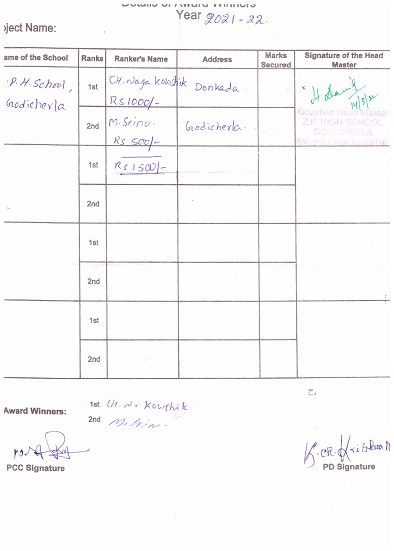 Details of Award Winners
Year 2021-22
oject Name:
ame of the School Ranks Ranker's Name Address Marks Secured Signature of the Head Master
.P.H.School, Godicherla
1st CH.Naga Kowshik Donkada
Rs 1000/-
2nd M.Srinu Godicherla
Rs 500/-
1st Rs 1500/-
2nd
1st
2nd
1st
2nd
14/3/22
Gazetted Head Master
Z.P. HIGH SCHOOL
GODICHERLA
Award Winners:
1st CH.N. Kowshik
2nd M.Srinu
PCC Signature
PD Signature